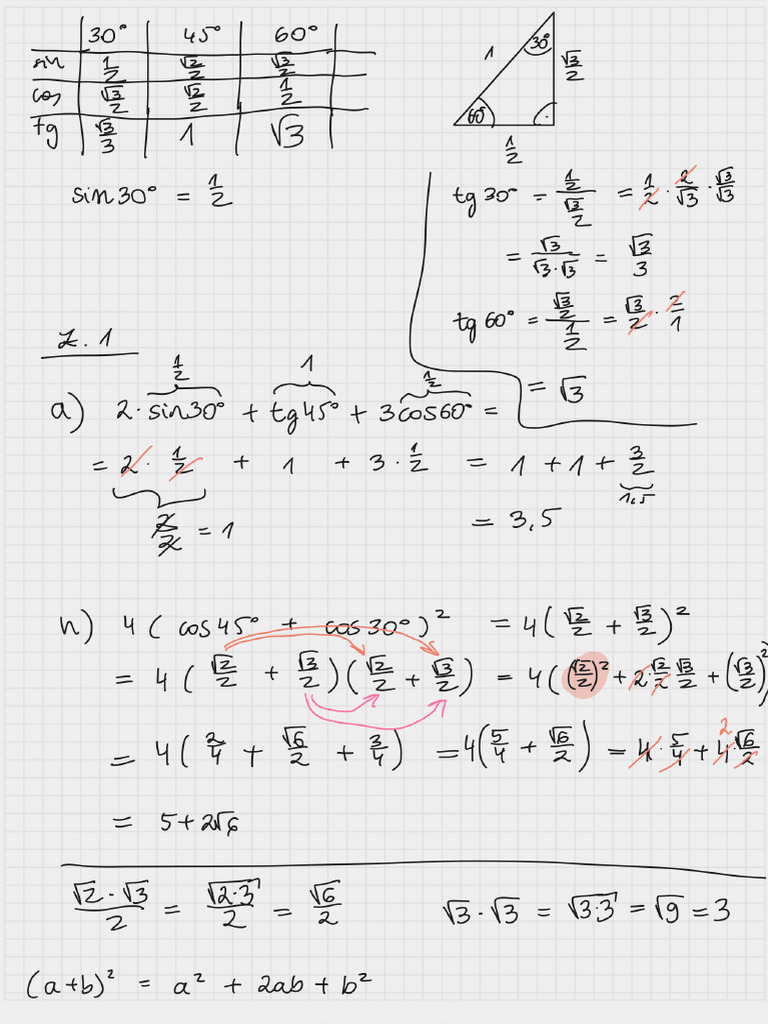 30° 45° 60°
sin 1/2 √2/2 √3/2
cos √3/2 √2/2 1/2
tg √3/3 1 √3
1 30° √3/2
60°
1/2
sin30° = 1/2
tg30° = (1/2)/(√3/2) = 1/2 · 2/√3 · √3/√3
= √3/(√3·√3) = √3/3
tg60° = (√3/2)/(1/2) = √3/2 · 2/1
= √3
Z. 1
1/2 1 1/2
a) 2·sin30° + tg45° + 3cos60° =
= 2 · 1/2 + 1 + 3 · 1/2 = 1 + 1 + 3/2
1,5
2/2 = 1
= 3,5
n) 4( cos45° + cos30° )² = 4( √2/2 + √3/2 )²
= 4( √2/2 + √3/2 )( √2/2 + √3/2 ) = 4( (√2/2)² + 2·√2/2 √3/2 + (√3/2)²
= 4( 2/4 + √6/2 + 3/4 ) = 4( 5/4 + √6/2 ) = 4 · 5/4 + 4 √6/2
2
= 5 + 2√6
(√2 · √3)/2 = √(2·3)/2 = √6/2
√3 · √3 = √(3·3) = √9 = 3
(a+b)² = a² + 2ab + b²